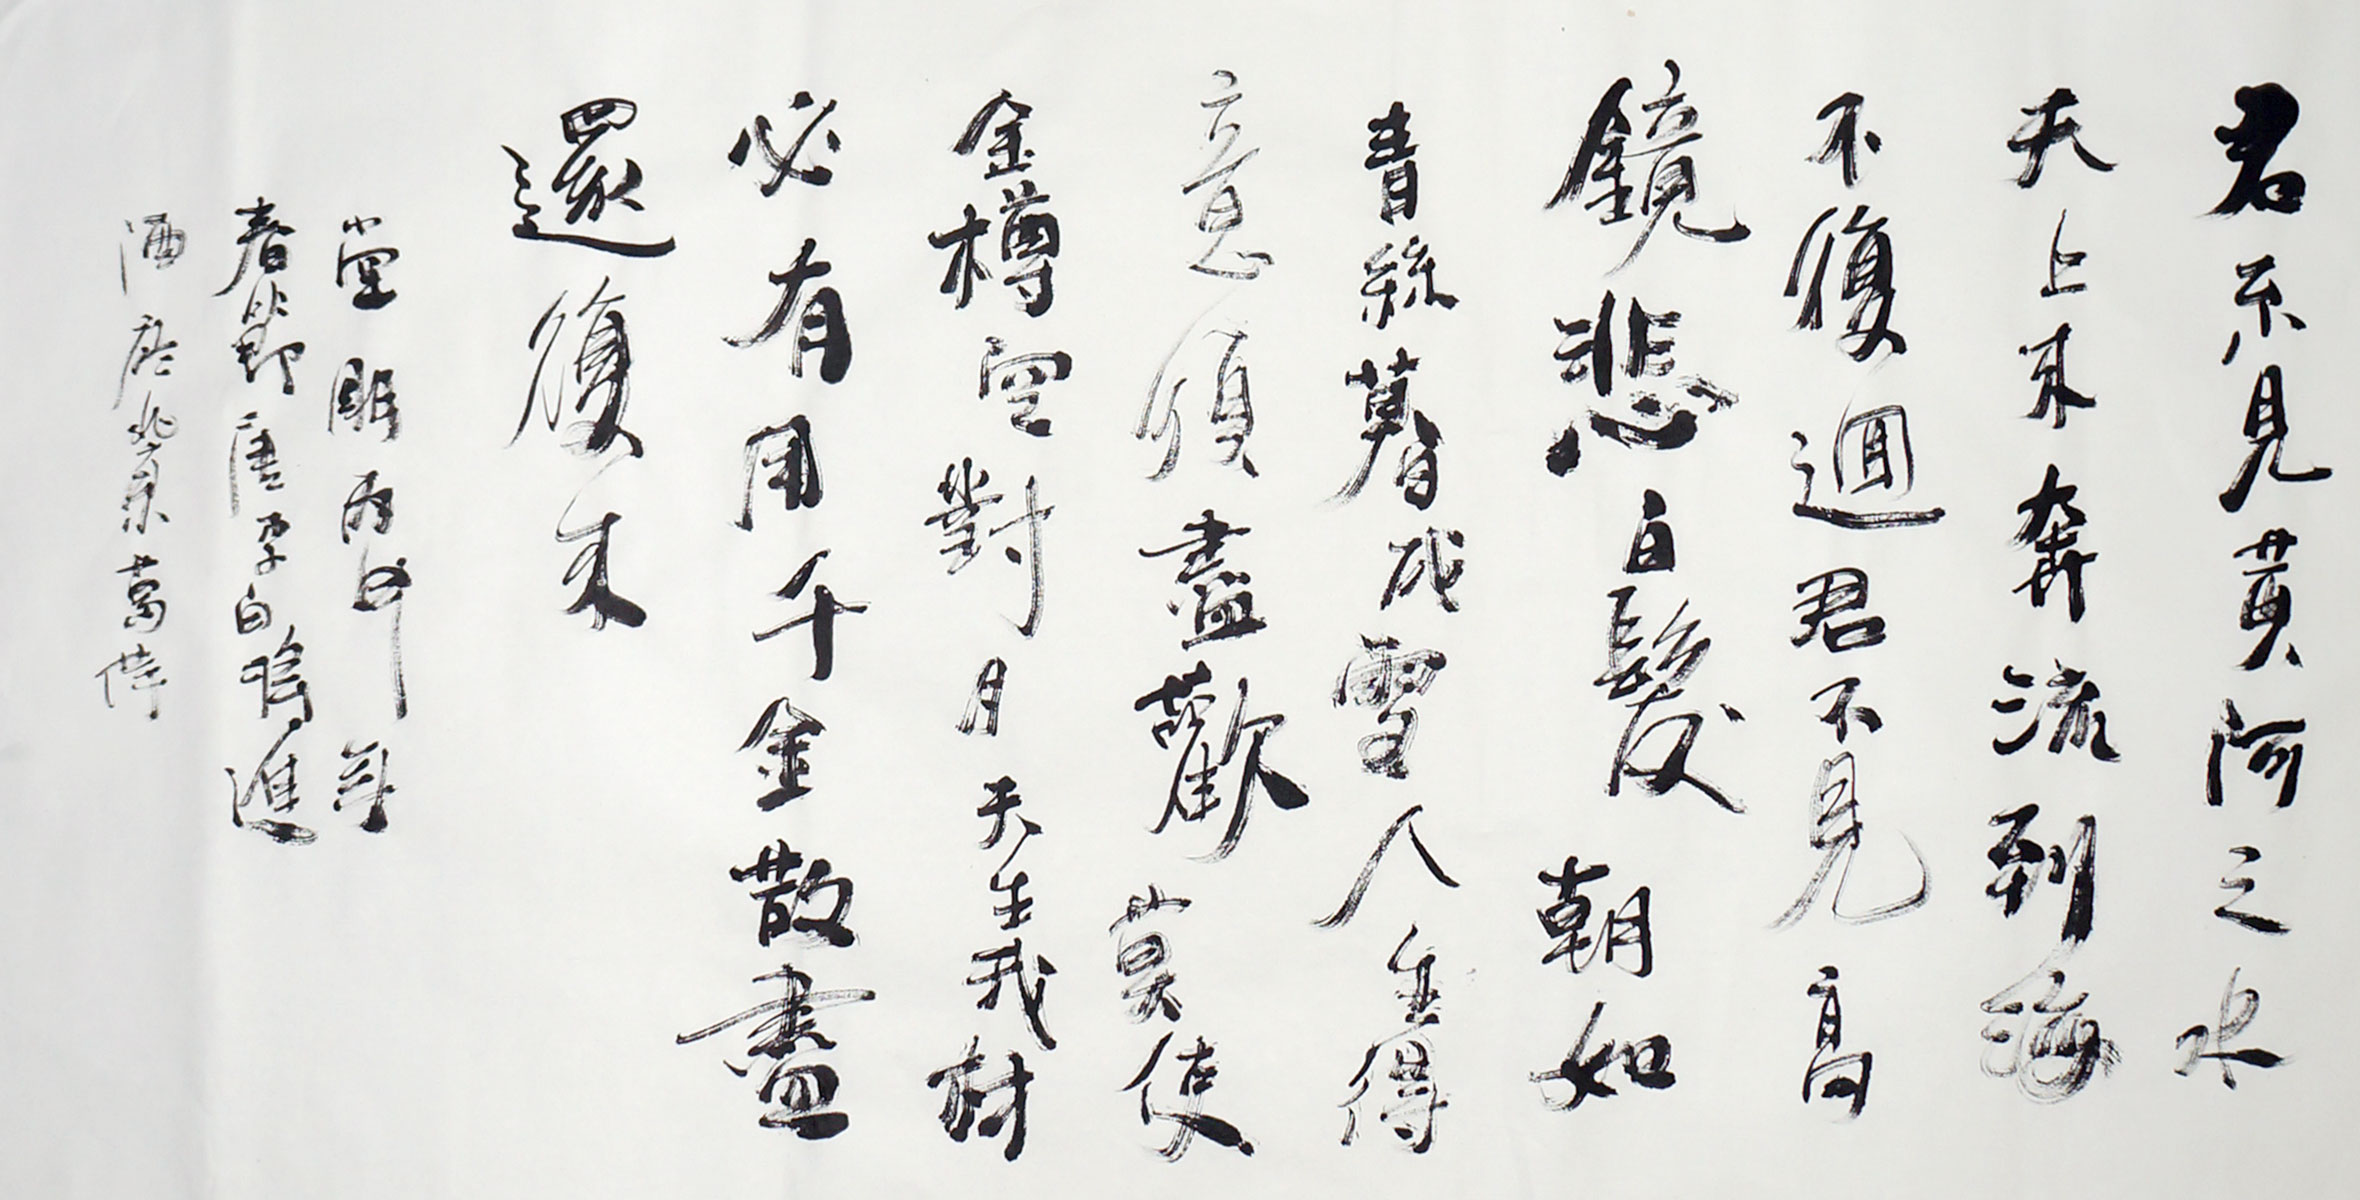 君不見黃河之水
天上來奔流到海
不復迴君不見高
鏡悲白髮朝如
青絲暮成雪人生得
意須盡歡莫使
金樽空對月天生我材
必有用千金散盡
還復來
堂明丙申年
春節唐李白將進
酒北京葛偉